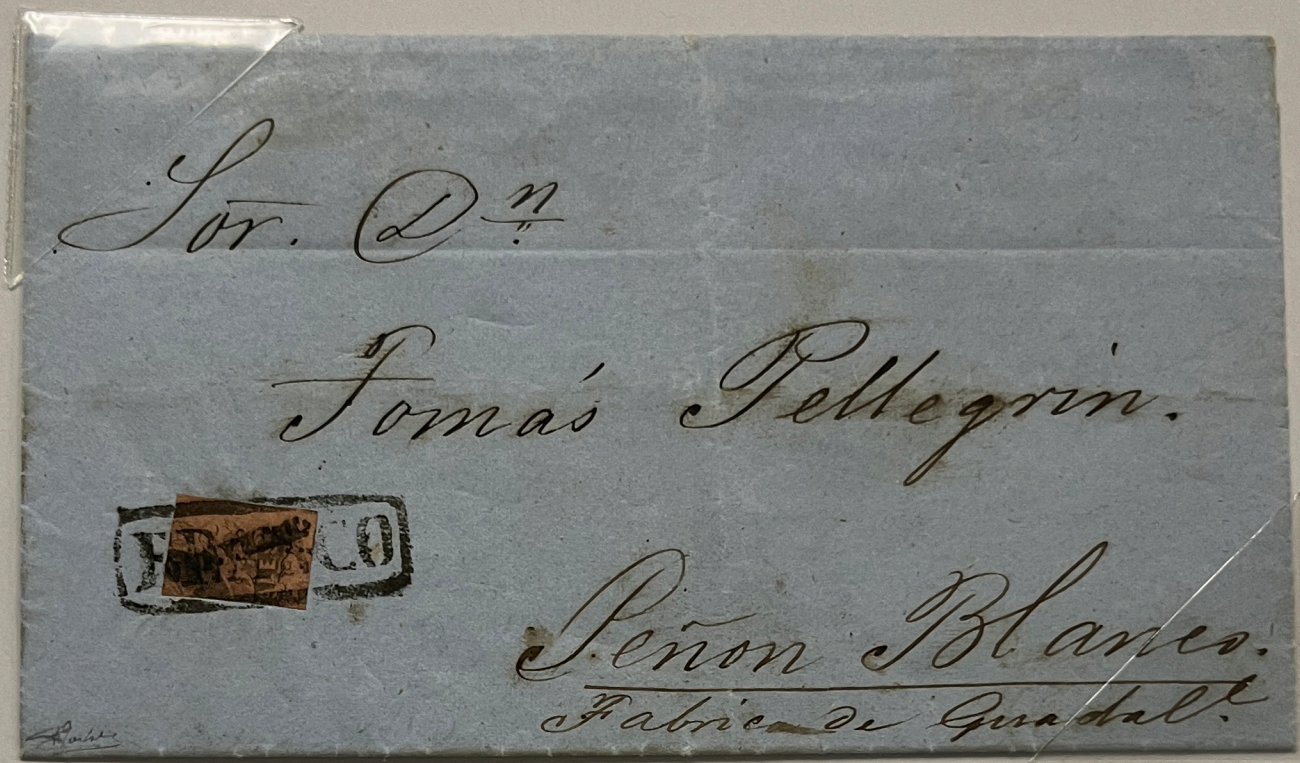 Sor. Dn
Tomás Pellegrin.
FRANCO
Peñon Blanco.
Fabrica de Guadale.